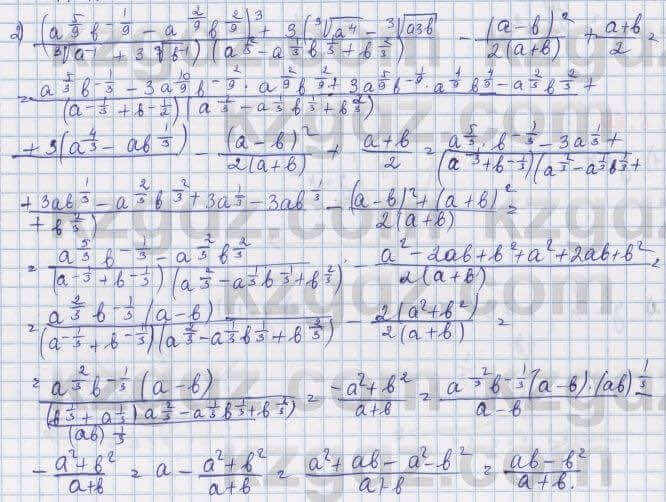 2) (a^(5/9) b^(-1/9) - a^(2/9) b^(2/9))^3 + 3(∛a^4 - ∛a3b) / (∛a^-1 + 3√b^-1)(a^(2/3) - a^(1/3) b^(1/3) + b^(2/3)) - (a-b)^2 / 2(a+b) + a+b / 2 =
= a^(5/3) b^(-1/3) - 3a^(10/9) b^(-2/9) · a^(2/9) b^(2/9) + 3a^(5/9) b^(-1/9) · a^(4/9) b^(4/9) - a^(2/3) b^(2/3) + / (a^(-1/3) + b^(-1/2))(a^(2/3) - a^(1/3) b^(1/3) + b^(2/3))
+ 3(a^(4/3) - ab^(1/3)) - (a-b)^2 / 2(a+b) + a+b / 2 = a^(5/3) · b^(-1/3) - 3a^(1/3) + / (a^(-1/3) + b^(-1/3))(a^(2/3) - a^(1/3) b^(1/3) +
+ 3ab^(1/3) - a^(2/3) b^(2/3) + 3a^(1/3) - 3ab^(1/3) / + b^(2/3)) - (a-b)^2 + (a+b)^2 / 2(a+b) =
= a^(5/3) b^(-1/3) - a^(2/3) b^(2/3) / (a^(-1/3) + b^(-1/3))(a^(2/3) - a^(1/3) b^(1/3) + b^(2/3)) - a^2 - 2ab + b^2 + a^2 + 2ab + b^2 / 2(a+b) =
= a^(2/3) b^(-1/3) (a-b) / (a^(-1/3) + b^(-1/3))(a^(2/3) - a^(1/3) b^(1/3) + b^(2/3)) - 2(a^2+b^2) / 2(a+b) =
= a^(2/3) b^(-1/3) (a-b) / (b^(1/3) + a^(1/3)) a^(2/3) - a^(1/3) b^(1/3) + b^(2/3)) / (ab)^(1/3) = -a^2+b^2 / a+b = a^(-2/3) b^(-1/3) (a-b) · (ab)^(1/3) / a-b
- a^2+b^2 / a+b = a - a^2+b^2 / a+b = a^2 + ab - a^2 - b^2 / a+b = ab - b^2 / a+b.
kzgdz.com